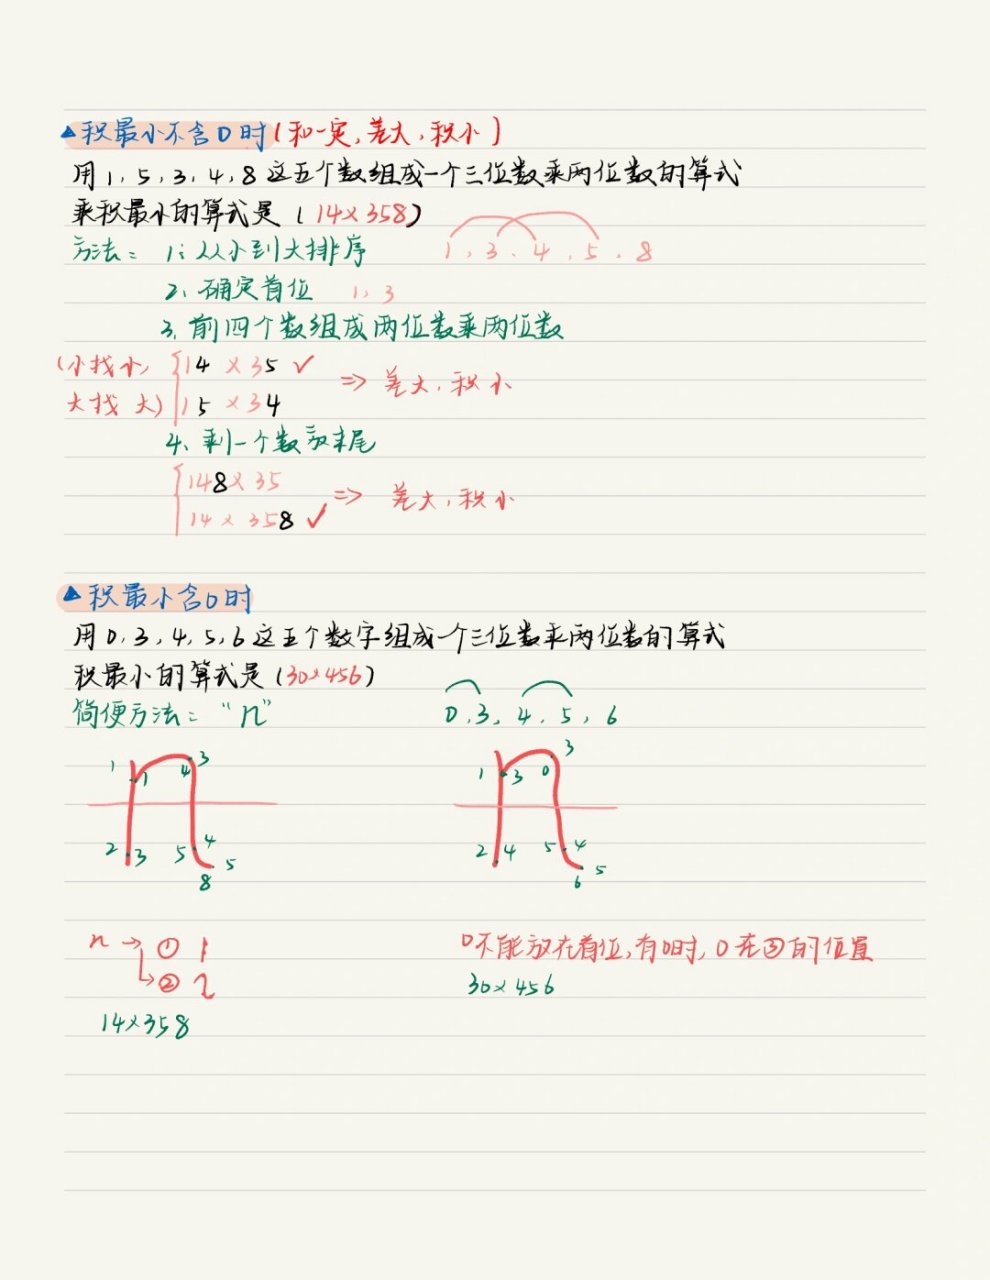 ▲积最小不含0时(和一定,差大,积小)
用1,5,3,4,8这五个数组成一个三位数乘两位数的算式
乘积最小的算式是(14×358)
方法: 1、从小到大排序 1,3,4,5,8
2、确定首位 1,3
3、前四个数组成两位数乘两位数
(小找小, 14×35 ✓
大找大) 15×34 => 差大,积小
4、剩一个数放末尾
148×35
14×358 ✓ => 差大,积小
▲积最小含0时
用0,3,4,5,6这五个数字组成一个三位数乘两位数的算式
积最小的算式是(30×456)
简便方法:“n” 0,3,4,5,6
1 1 4 3 1 3 0 3
2 3 5 4 2 4 5 4
8 5 6 5
n → ① 1 0不能放在首位,有0时,0在③的位置
→ ② 2 30×456
14×358